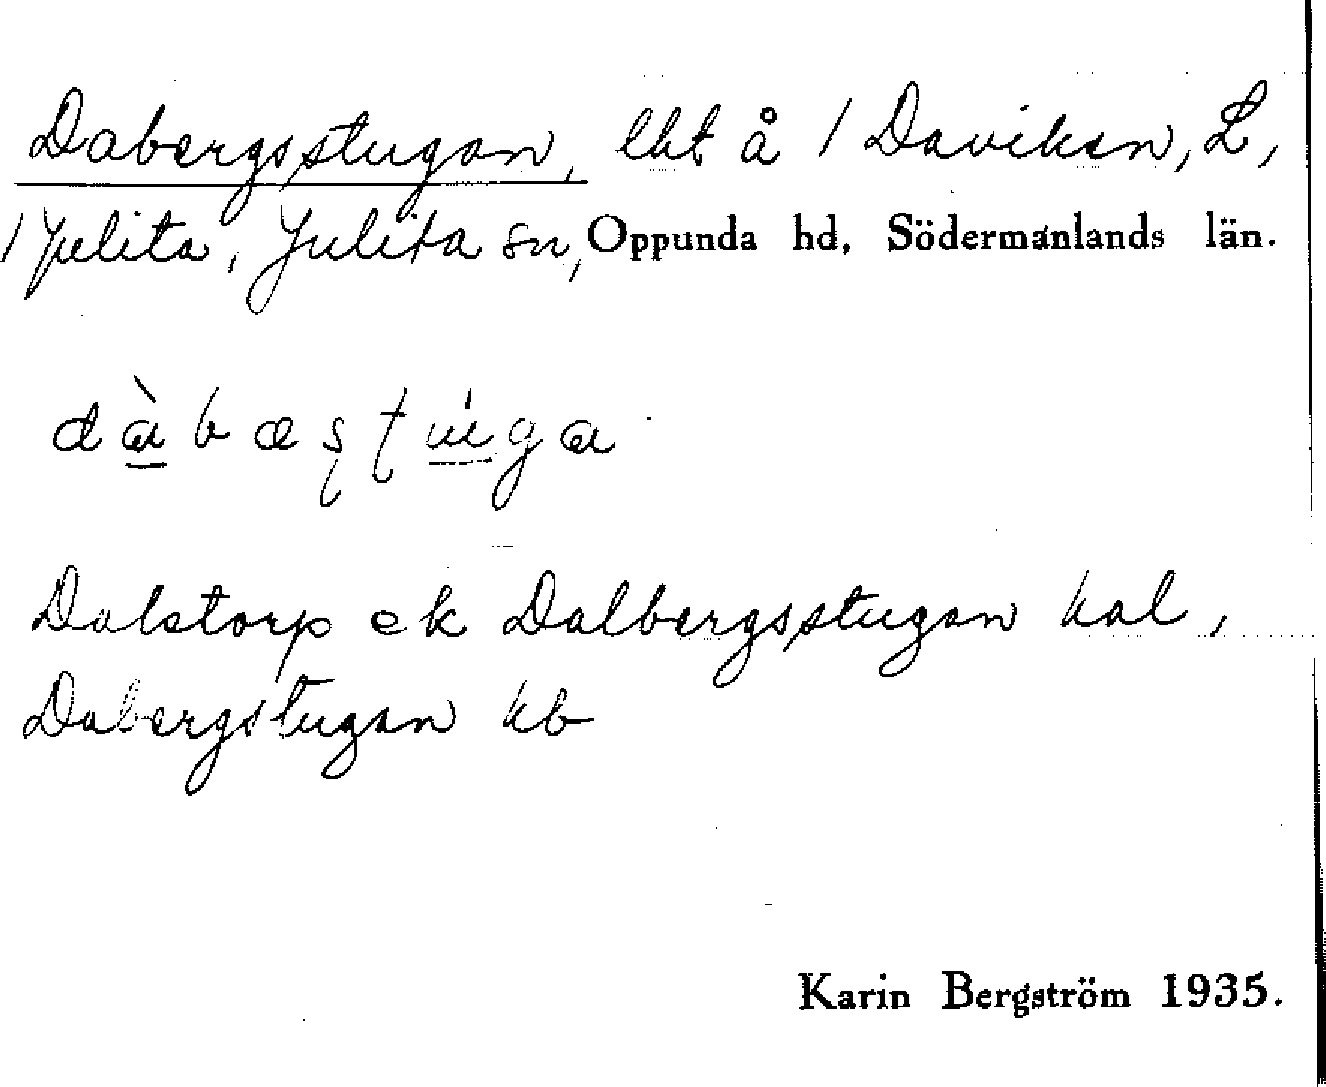 Dabergsstugan, lht å 1 Daviken, L,
1 Julita, Julita sn, Oppunda hd, Södermanlands län.
dàbæstúga
Dalstorp ek Dalbergsstugan hal,
Dabergstugan kb
Karin Bergström 1935.